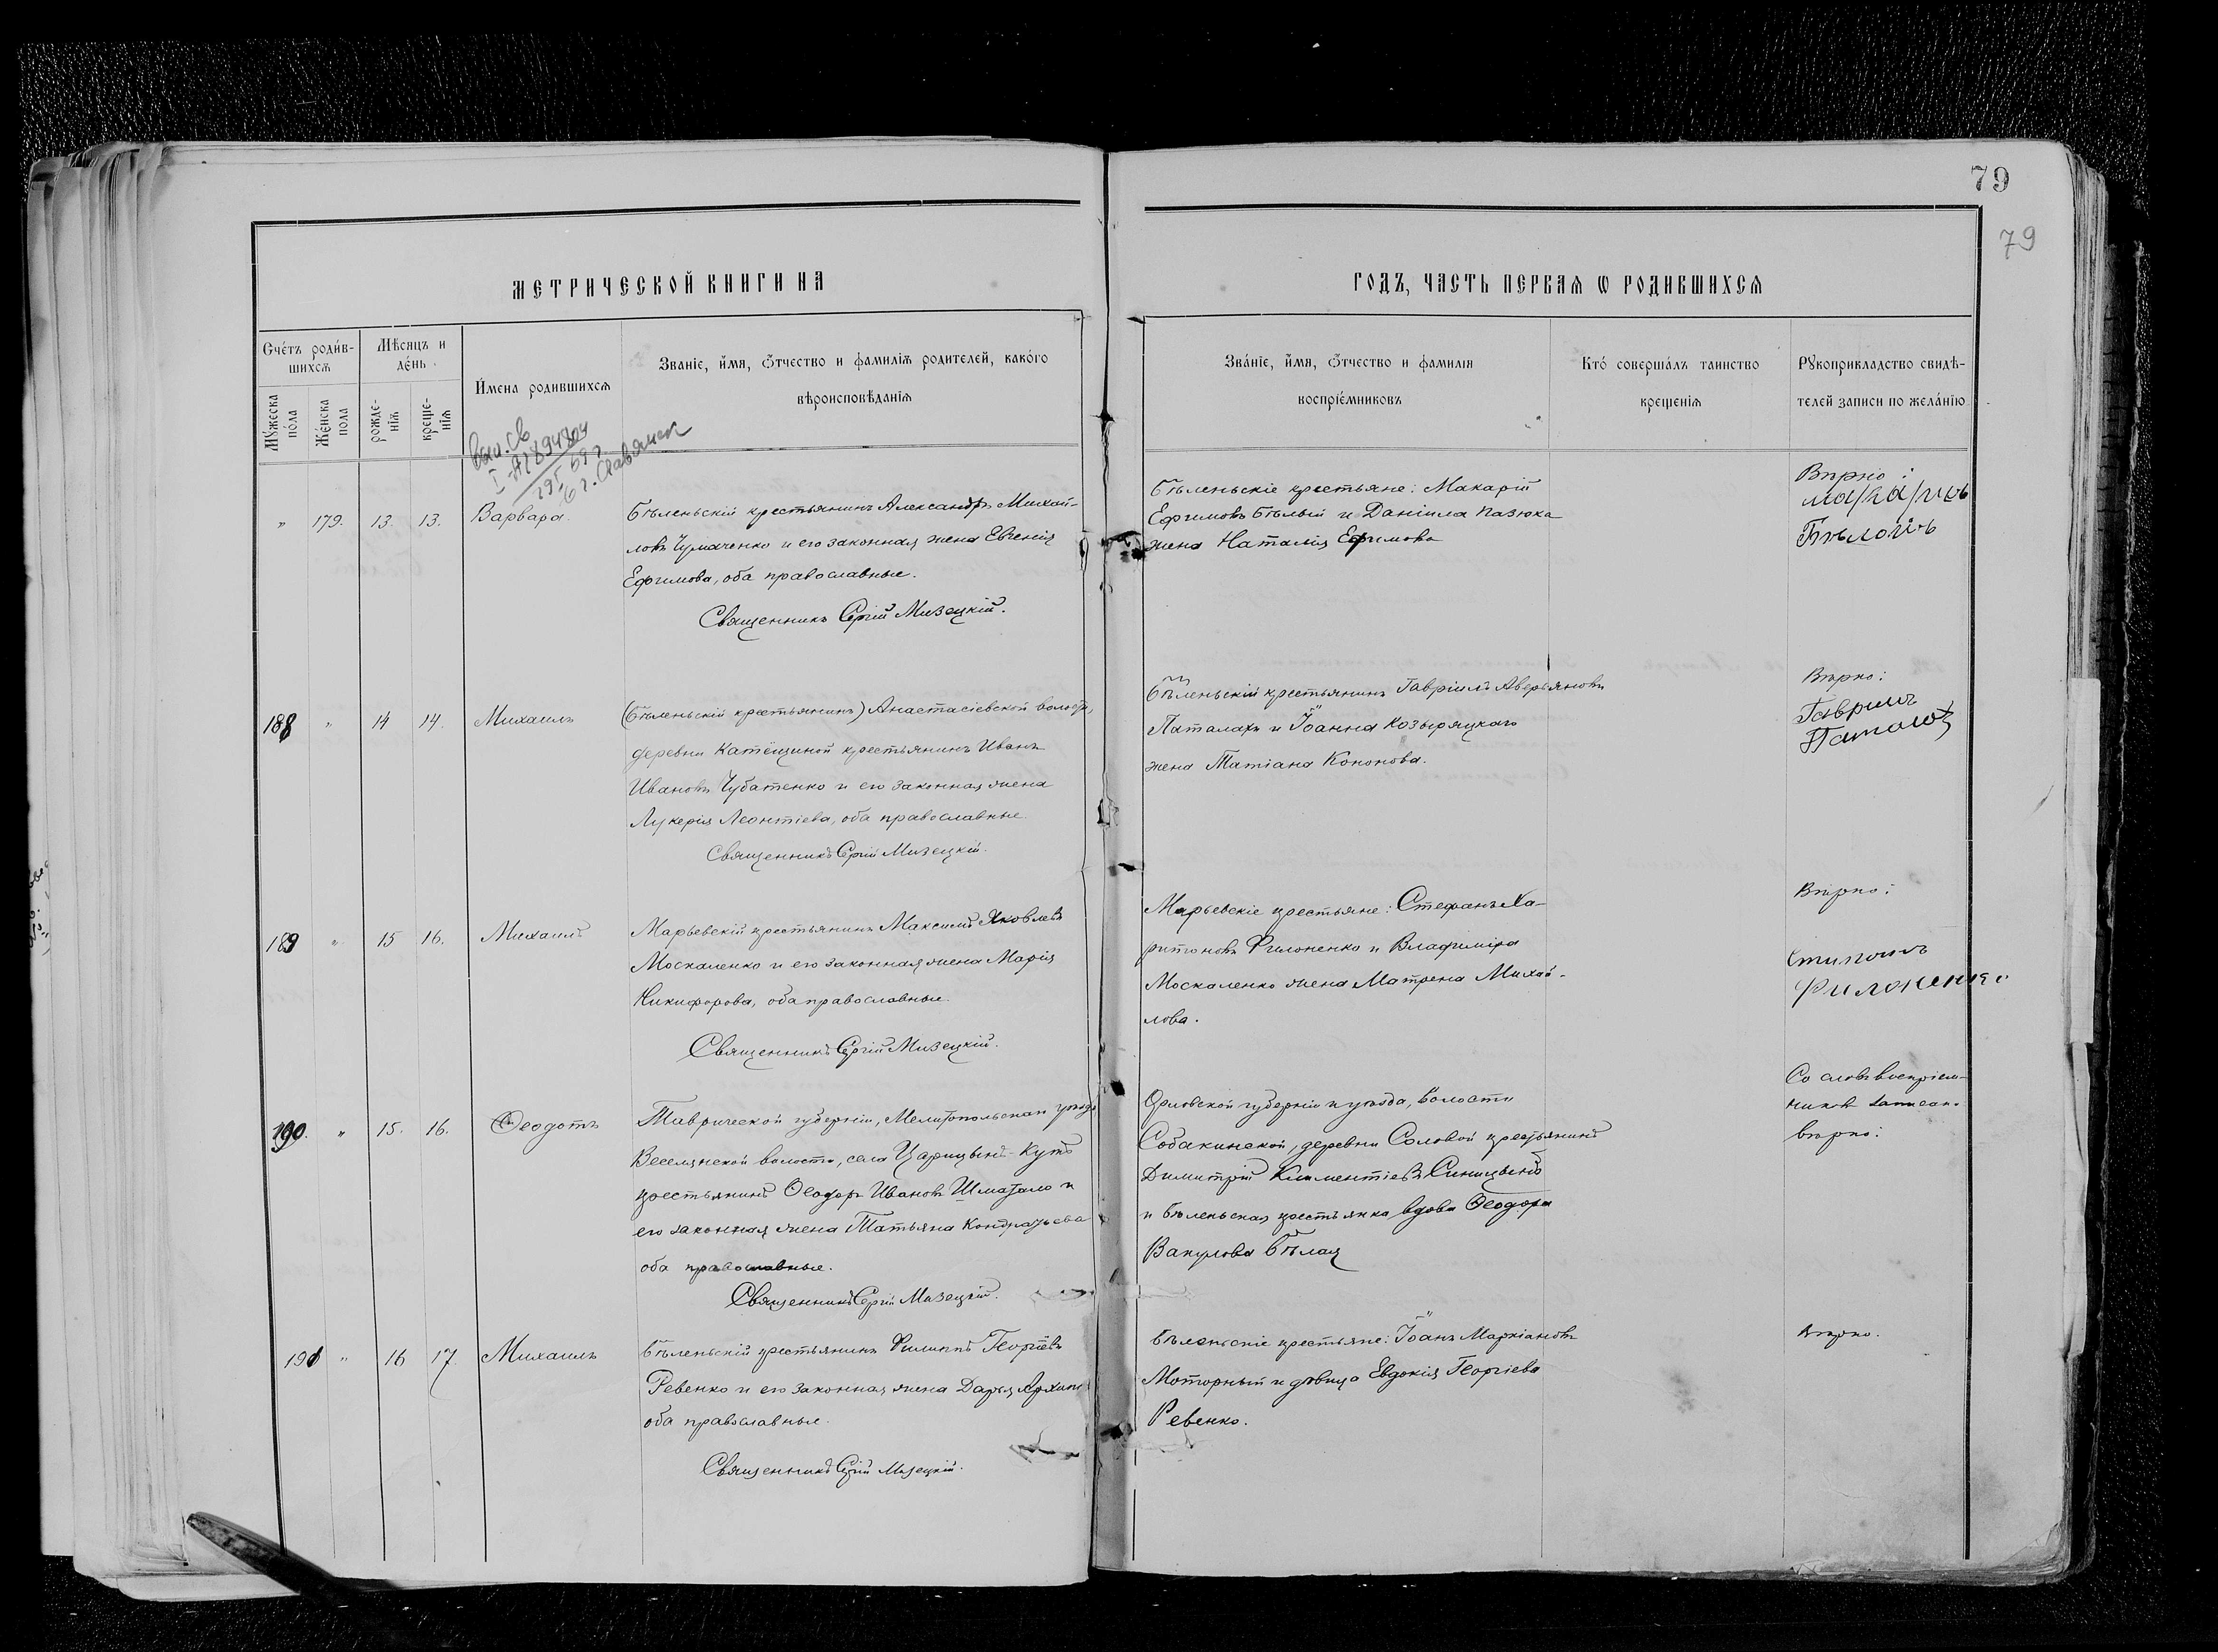 79
79
МЕТРИЧЕСКОЙ КНИГИ НА
ГОДЪ, ЧАСТЬ ПЕРВАѦ Ѡ РОДИВШИХСѦ
Счéтъ роди́в-
шихсѧ
Мꙋ́жеска
по́ла
Же́нска
пола
Мѣсяцъ и
де́нь
рожде-
нїѧ
креще-
нїѧ
И́мена родившихсѧ
Званїе, и́мя, Ѻтчество и фамилїѧ родителей, како́го
вѣроисповѣданїѧ
Зва́нїе, и́мя, Ѻтчество и фамилїя
воспрїе́мниковъ
Кто́ соверша́лъ таинство
крещенїѧ
Рꙋкоприкладство свидѣ-
телей записи по жела́нїю
выд. св
I-
г. Славянск
" 179. 13. 13. Варвара.
Бѣленьскій крестьянинъ Александръ Михай-
ловъ Чумаченко и его законная жена Евгенія
Ефимова, оба православные.
Священникъ Сергій Мизецкій.
Бѣленьскіе крестьяне: Макарій
Ефимовъ Бѣлый и Даніила Пазюка
жена Наталія Ефимова
Вѣрно:
Бѣлоивъ
188 " 14 14. Михаилъ
(Бѣленьскій крестьянинъ) Анастасіевской волости,
деревни крестьянинъ Иванъ
Ивановъ Чубатенко и его законная жена
Лукерія Леонтіева, оба православные.
Священникъ Сергій Мизецкій.
Бѣленьскій крестьянинъ Гавріилъ Аверьяновъ
Паталахъ и Іоанна Козыряцкаго
жена Татіана Кононова.
Вѣрно:
Гаврилъ
189 " 15 16. Михаилъ
Марьевскій крестьянинъ Максимъ Яковлевъ
Москаленко и его законная жена Марія
Никифорова, оба православные.
Священникъ Сергій Мизецкій.
Марьевскіе крестьяне: Стефанъ Ха-
ритоновъ Филоненко и Владиміра
Москаленко жена Матрена Михай-
лова.
Вѣрно:
Филоненко
190. " 15. 16. Ѳеодотъ
Таврической губерніи, Мелитопольскаго уѣзда
Веселянской волости, села Царицынъ-Кутъ
крестьянинъ Ѳеодоръ Ивановъ Шматало и
его законная жена Татьяна Кондратьева
оба православные.
Священникъ Сергій Мизецкій.
Орловской губерніи и уѣзда, волости
Собакинской, деревни Соловой крестьянинъ
Димитрій Климентіевъ Синицынъ
и бѣленьская крестьянка вдова Ѳеодора
Вакулова Бѣлая
Со словъ воспріем-
никовъ записано
вѣрно:
191 " 16 17. Михаилъ
Бѣленьскій крестьянинъ Филиппъ Георгіевъ
Ревенко и его законная жена Дарья Архипо
оба православные.
Священникъ Сергій Мизецкій.
Бѣленьскіе крестьяне: Іоанъ Маркіановъ
Моторный и дѣвица Евдокія Георгіева
Ревенко.
Вѣрно.